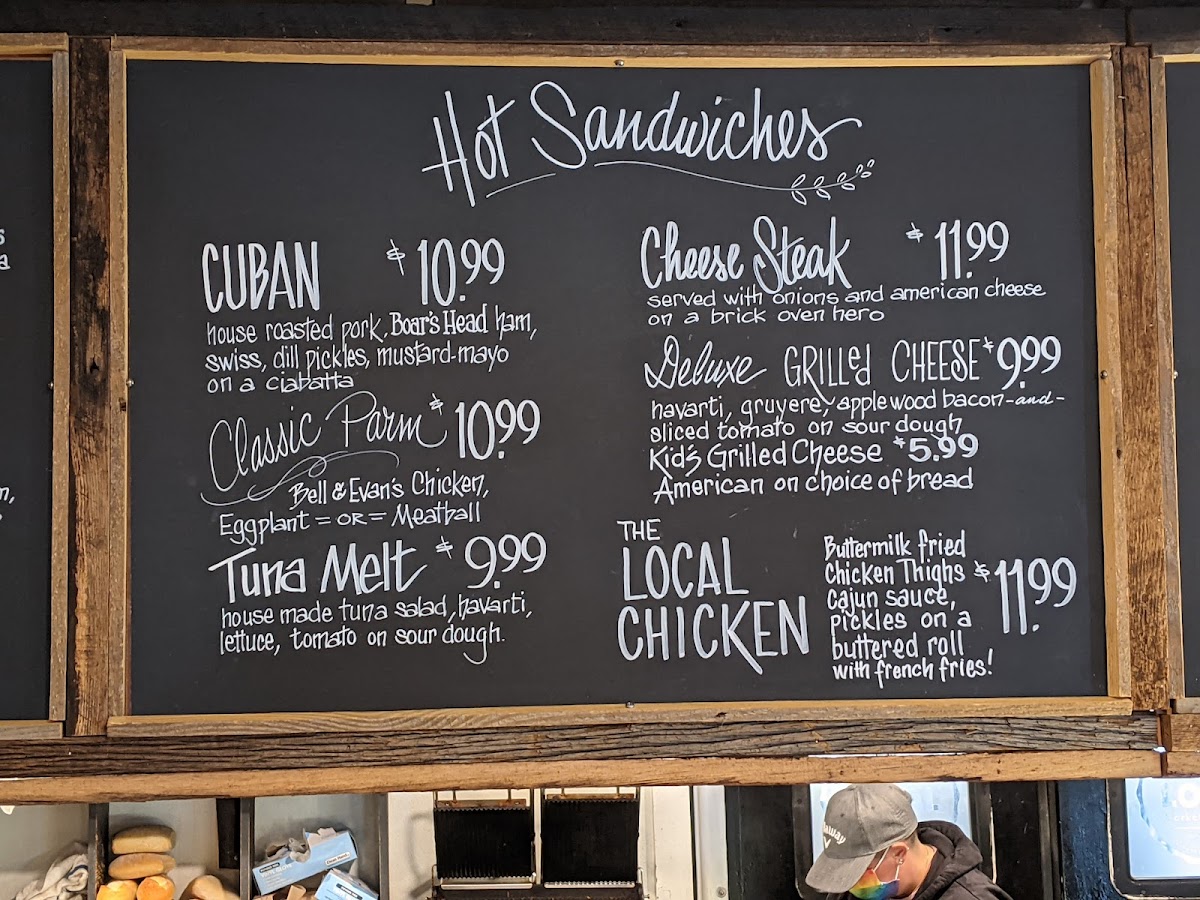 Hot Sandwiches
CUBAN $10.99
house roasted pork, Boar's Head ham,
swiss, dill pickles, mustard-mayo
on a ciabatta
Classic Parm $10.99
Bell & Evan's Chicken,
Eggplant = OR = Meatball
Tuna Melt $9.99
house made tuna salad, havarti,
lettuce, tomato on sour dough.
Cheese Steak $11.99
served with onions and american cheese
on a brick oven hero
Deluxe GRILLed CHEESE $9.99
havarti, gruyere, applewood bacon -and-
sliced tomato on sour dough
Kid's Grilled Cheese $5.99
American on choice of bread
THE
LOCAL
CHICKEN
Buttermilk fried
Chicken Thighs $11.99
cajun sauce,
pickles on a
buttered roll
with french fries!